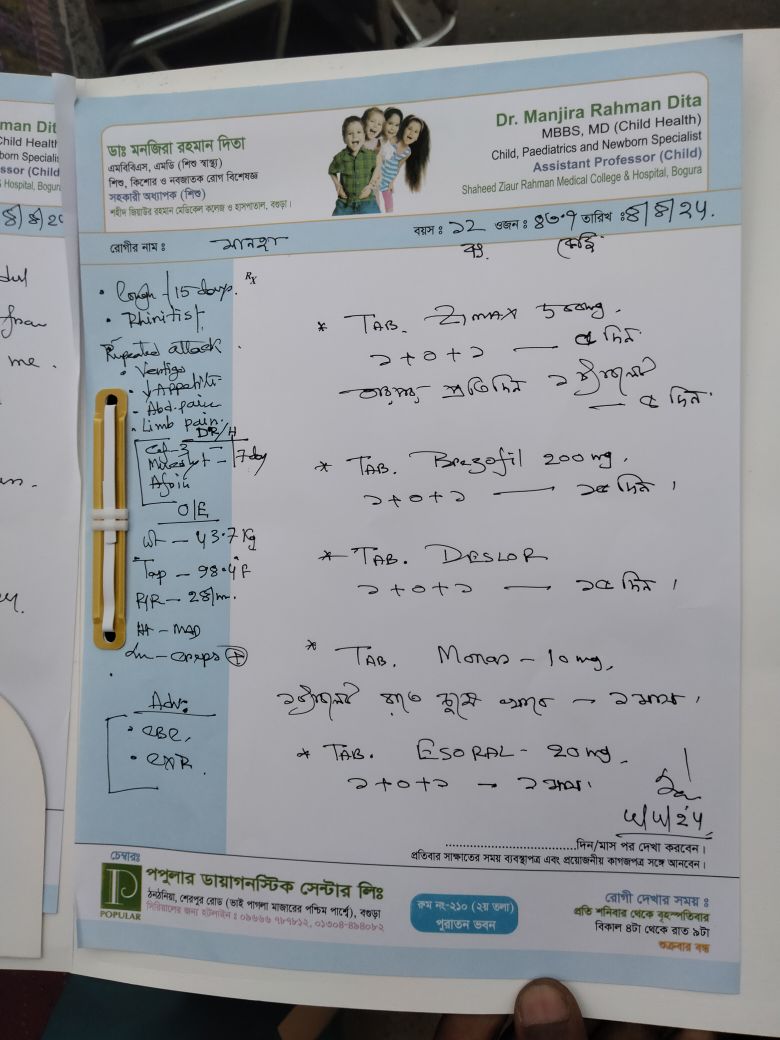 man Dit
Child Health)
born Specialis
ssor (Child)
& Hospital, Bogura
8/8/24
me.
ডাঃ মনজিরা রহমান দিতা
এমবিবিএস, এমডি (শিশু স্বাস্থ্য)
শিশু, কিশোর ও নবজাতক রোগ বিশেষজ্ঞ
সহকারী অধ্যাপক (শিশু)
শহীদ জিয়াউর রহমান মেডিকেল কলেজ ও হাসপাতাল, বগুড়া।
Dr. Manjira Rahman Dita
MBBS, MD (Child Health)
Child, Paediatrics and Newborn Specialist
Assistant Professor (Child)
Shaheed Ziaur Rahman Medical College & Hospital, Bogura
রোগীর নাম ঃ
বয়স ঃ ১২ ওজন ঃ ৪৩.৭ তারিখ ঃ 8/8/24.
কেজি
• Cough - 15 days.
Rx
• Rhinitis
Repeated attack
• Vertigo
• ↓Appetite
• Abd. pain
• Limb pain
DR/H
Cef-3
7 day
O/E
Wt - 43.7 Kg
98.4°F
R/R - 28/m.
Adv:
• CBC,
• CXR.
* TAB. Zimax 500mg.
১+০+১ — ৫ দিন
প্রতিদিন ১
— ৫ দিন
* TAB. 200 mg.
১+০+১ — ১৫ দিন।
* TAB. DESLOR
১+০+১ — ১৫ দিন।
* TAB. Monas - 10 mg.
রাতে — ১ মাস।
* TAB. ESORAL - 20 mg.
১+০+১ → ১ মাস।
..............................দিন/মাস পর দেখা করবেন।
প্রতিবার সাক্ষাতের সময় ব্যবস্থাপত্র এবং প্রয়োজনীয় কাগজপত্র সঙ্গে আনবেন।
চেম্বারঃ
POPULAR
পপুলার ডায়াগনস্টিক সেন্টার লিঃ
ঠনঠনিয়া, শেরপুর রোড (ভাই পাগলা মাজারের পশ্চিম পার্শ্বে), বগুড়া
সিরিয়ালের জন্য হটলাইন ঃ ০৯৬৬৬ ৭৮৭৮১২, ০১৩০৪-৪৯৪০৮২
রুম নং-২১০ (২য় তলা)
পুরাতন ভবন
রোগী দেখার সময় ঃ
প্রতি শনিবার থেকে বৃহস্পতিবার
বিকাল ৪টা থেকে রাত ৯টা
শুক্রবার বন্ধ